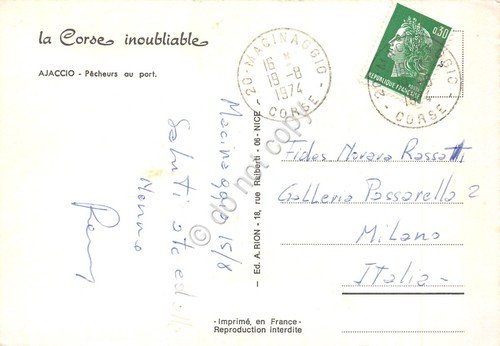 la Corse inoubliable
AJACCIO - Pêcheurs au port.
20 - MACINAGGIO
16 H
19 -8
1974
CORSE
0,30
REPUBLIQUE FRANÇAISE
CORSE
Macinaggio 15/8
Saluti
Fides Morava Rossetti
Galleria Passarella 2
Milano
Italia
Ed. A. RION - 18, rue Raiberti - 06 - NICE -
-Imprimé, en France-
Reproduction interdite
© do not copy